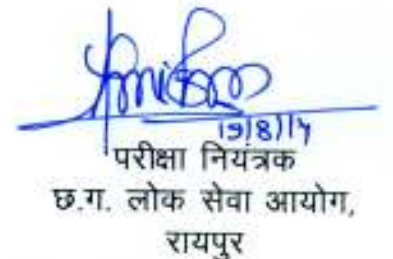 19/8/14
परीक्षा नियंत्रक
छ.ग. लोक सेवा आयोग,
रायपुर